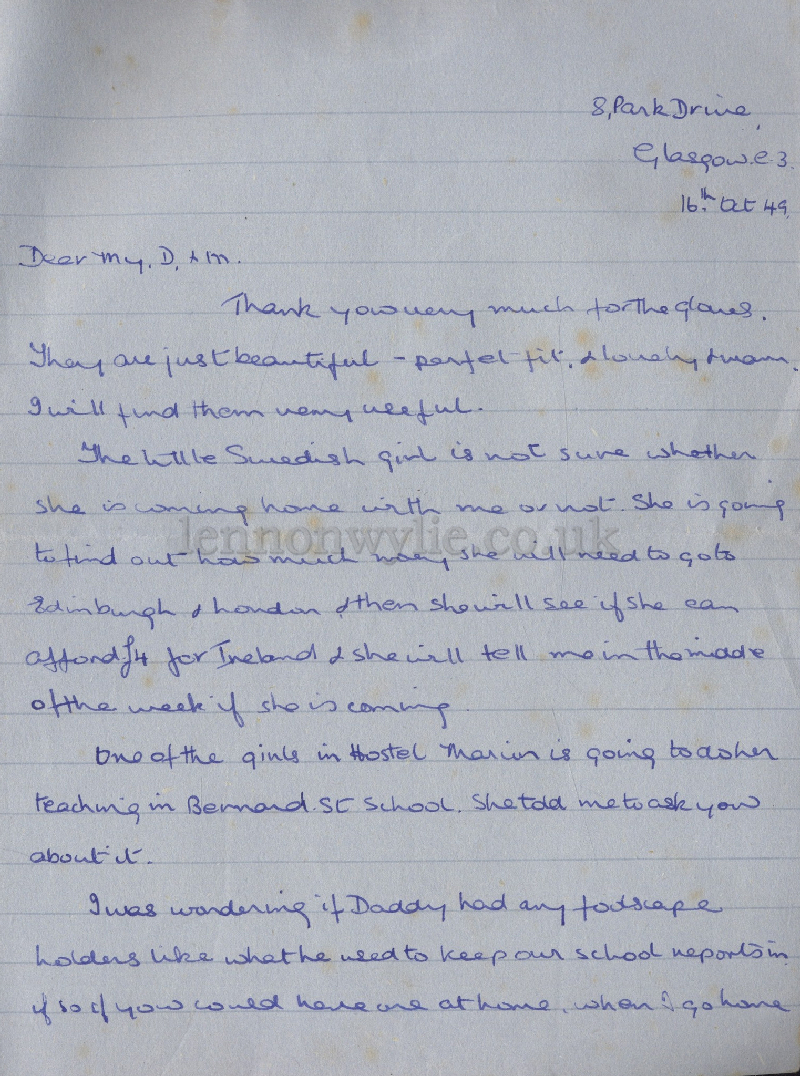 8, Park Drive,
Glasgow. C.3.
16th Oct 49.
Dear My, D, & M.
Thank you very much for the gloves.
They are just beautiful - perfect fit, & lovely & warm.
I will find them very useful.
The little Swedish girl is not sure whether
she is coming home with me or not. She is going
to find out how much money she will need to go to
Edinburgh & London & then she will see if she can
afford £4 for Ireland & she will tell me in the middle
of the week if she is coming.
One of the girls in Hostel Marion is going to do her
teaching in Bernard St School. She told me to ask you
about it.
I was wondering if Daddy had any foolscape
holders like what he used to keep our school reports in
if so if you could have one at home, when I go home
lennonwylie.co.uk